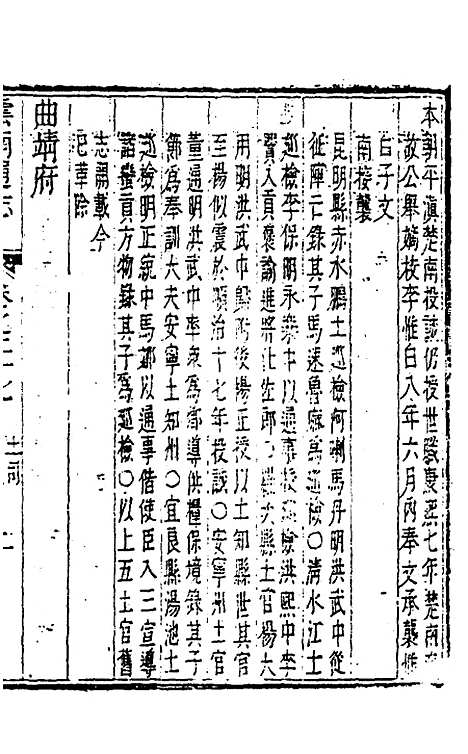 本朝平滇楚南投誠仍授世職康熙七年楚南
故公舉嫡枝李惟白八年六月內奉文承襲惟
白子文
南接襲
昆明縣赤水鵬土巡檢何喇馬丹明洪武中從
征陣亡錄其子馬速魯麻爲巡檢〇清水江土
巡檢李保明永樂中以通事授巡檢洪熙中李
賢入貢褒諭進將仕佐郎〇縣土官楊大
用明洪武中歸附後楊正授以土知縣世其官
至楊似震於順治十七年投誠〇安寧州土官
董通明洪武中率衆爲鄉導供糧保境錄其子
節爲奉訓大夫安寧土知州〇宜良縣湯池土
巡檢明正統中馬以通事偕使臣入三宣導
諸蠻貢方物錄其子爲巡檢〇以上五土官舊
志開載今
已革除
曲靖府
雲南通志
土司